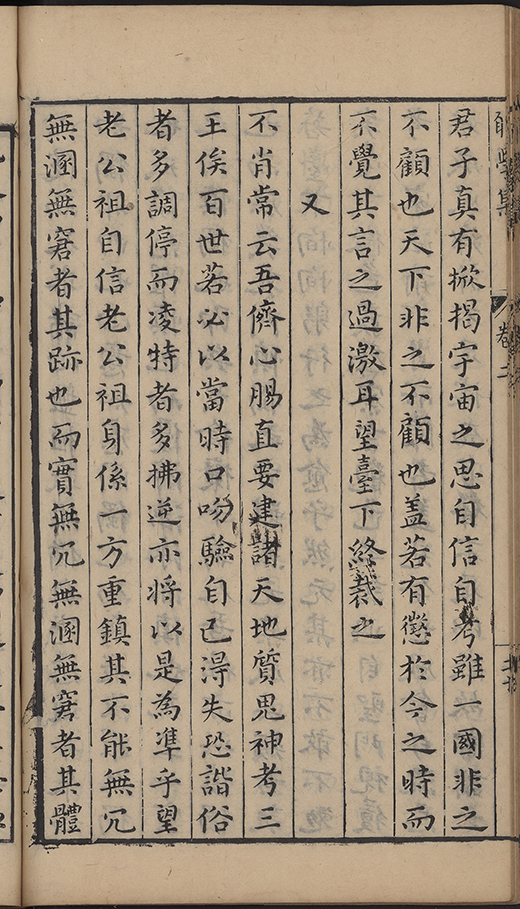 君子真有掀揭宇宙之思自信自考雖一國非之
不顧也天下非之不顧也盖若有懲於今之時而
不覺其言之過激耳望臺下終裁之
又
不肖常云吾儕心腸直要建諸天地質鬼神考三
王俟百世若必以當時口吻驗自己得失恐諧俗
者多調停而凌特者多拂逆亦将以是為準乎望
老公祖自信老公祖身係一方重鎮其不能無冗
無溷無窘者其跡也而實無冗無溷無窘者其體